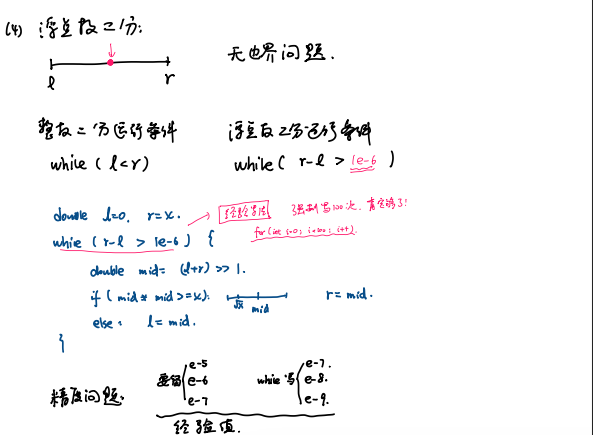 (4) 浮点数二分:
l r 无边界问题.
整数二分运行条件 浮点数二分运行条件
while ( l<r ) while ( r-l > 1e-6 )
double l=0, r=x. 经验写法 强制写100次, 肯定够了!
while ( r-l > 1e-6 ) { for (int i=0; i<100; i++)
double mid = (l+r) >> 1.
if ( mid * mid >= x): √x mid r = mid.
else: l = mid.
}
精度问题: 要留 e-5 e-6 e-7 while 写 e-7. e-8. e-9.
经验值.